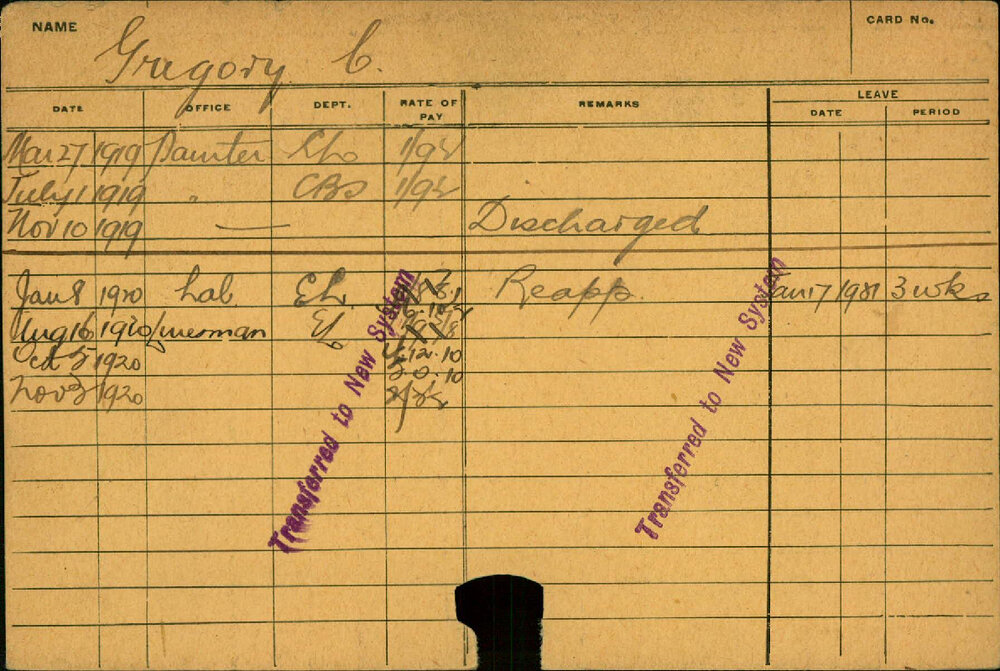 NAME Gregory C. CARD No.
DATE OFFICE DEPT. RATE OF PAY REMARKS LEAVE DATE PERIOD
Mar 27 1919 Painter
July 1 1919 " CBS
Nov 10 1919 — Discharged
Jan 8 1920 Lab EL. Reapp. Jan 17 1921 3 wks
Aug 16 1920 EL
Oct 5 1920 4.12.10
5.0.10
Nov 3 1920
Transferred to New System
Transferred to New System